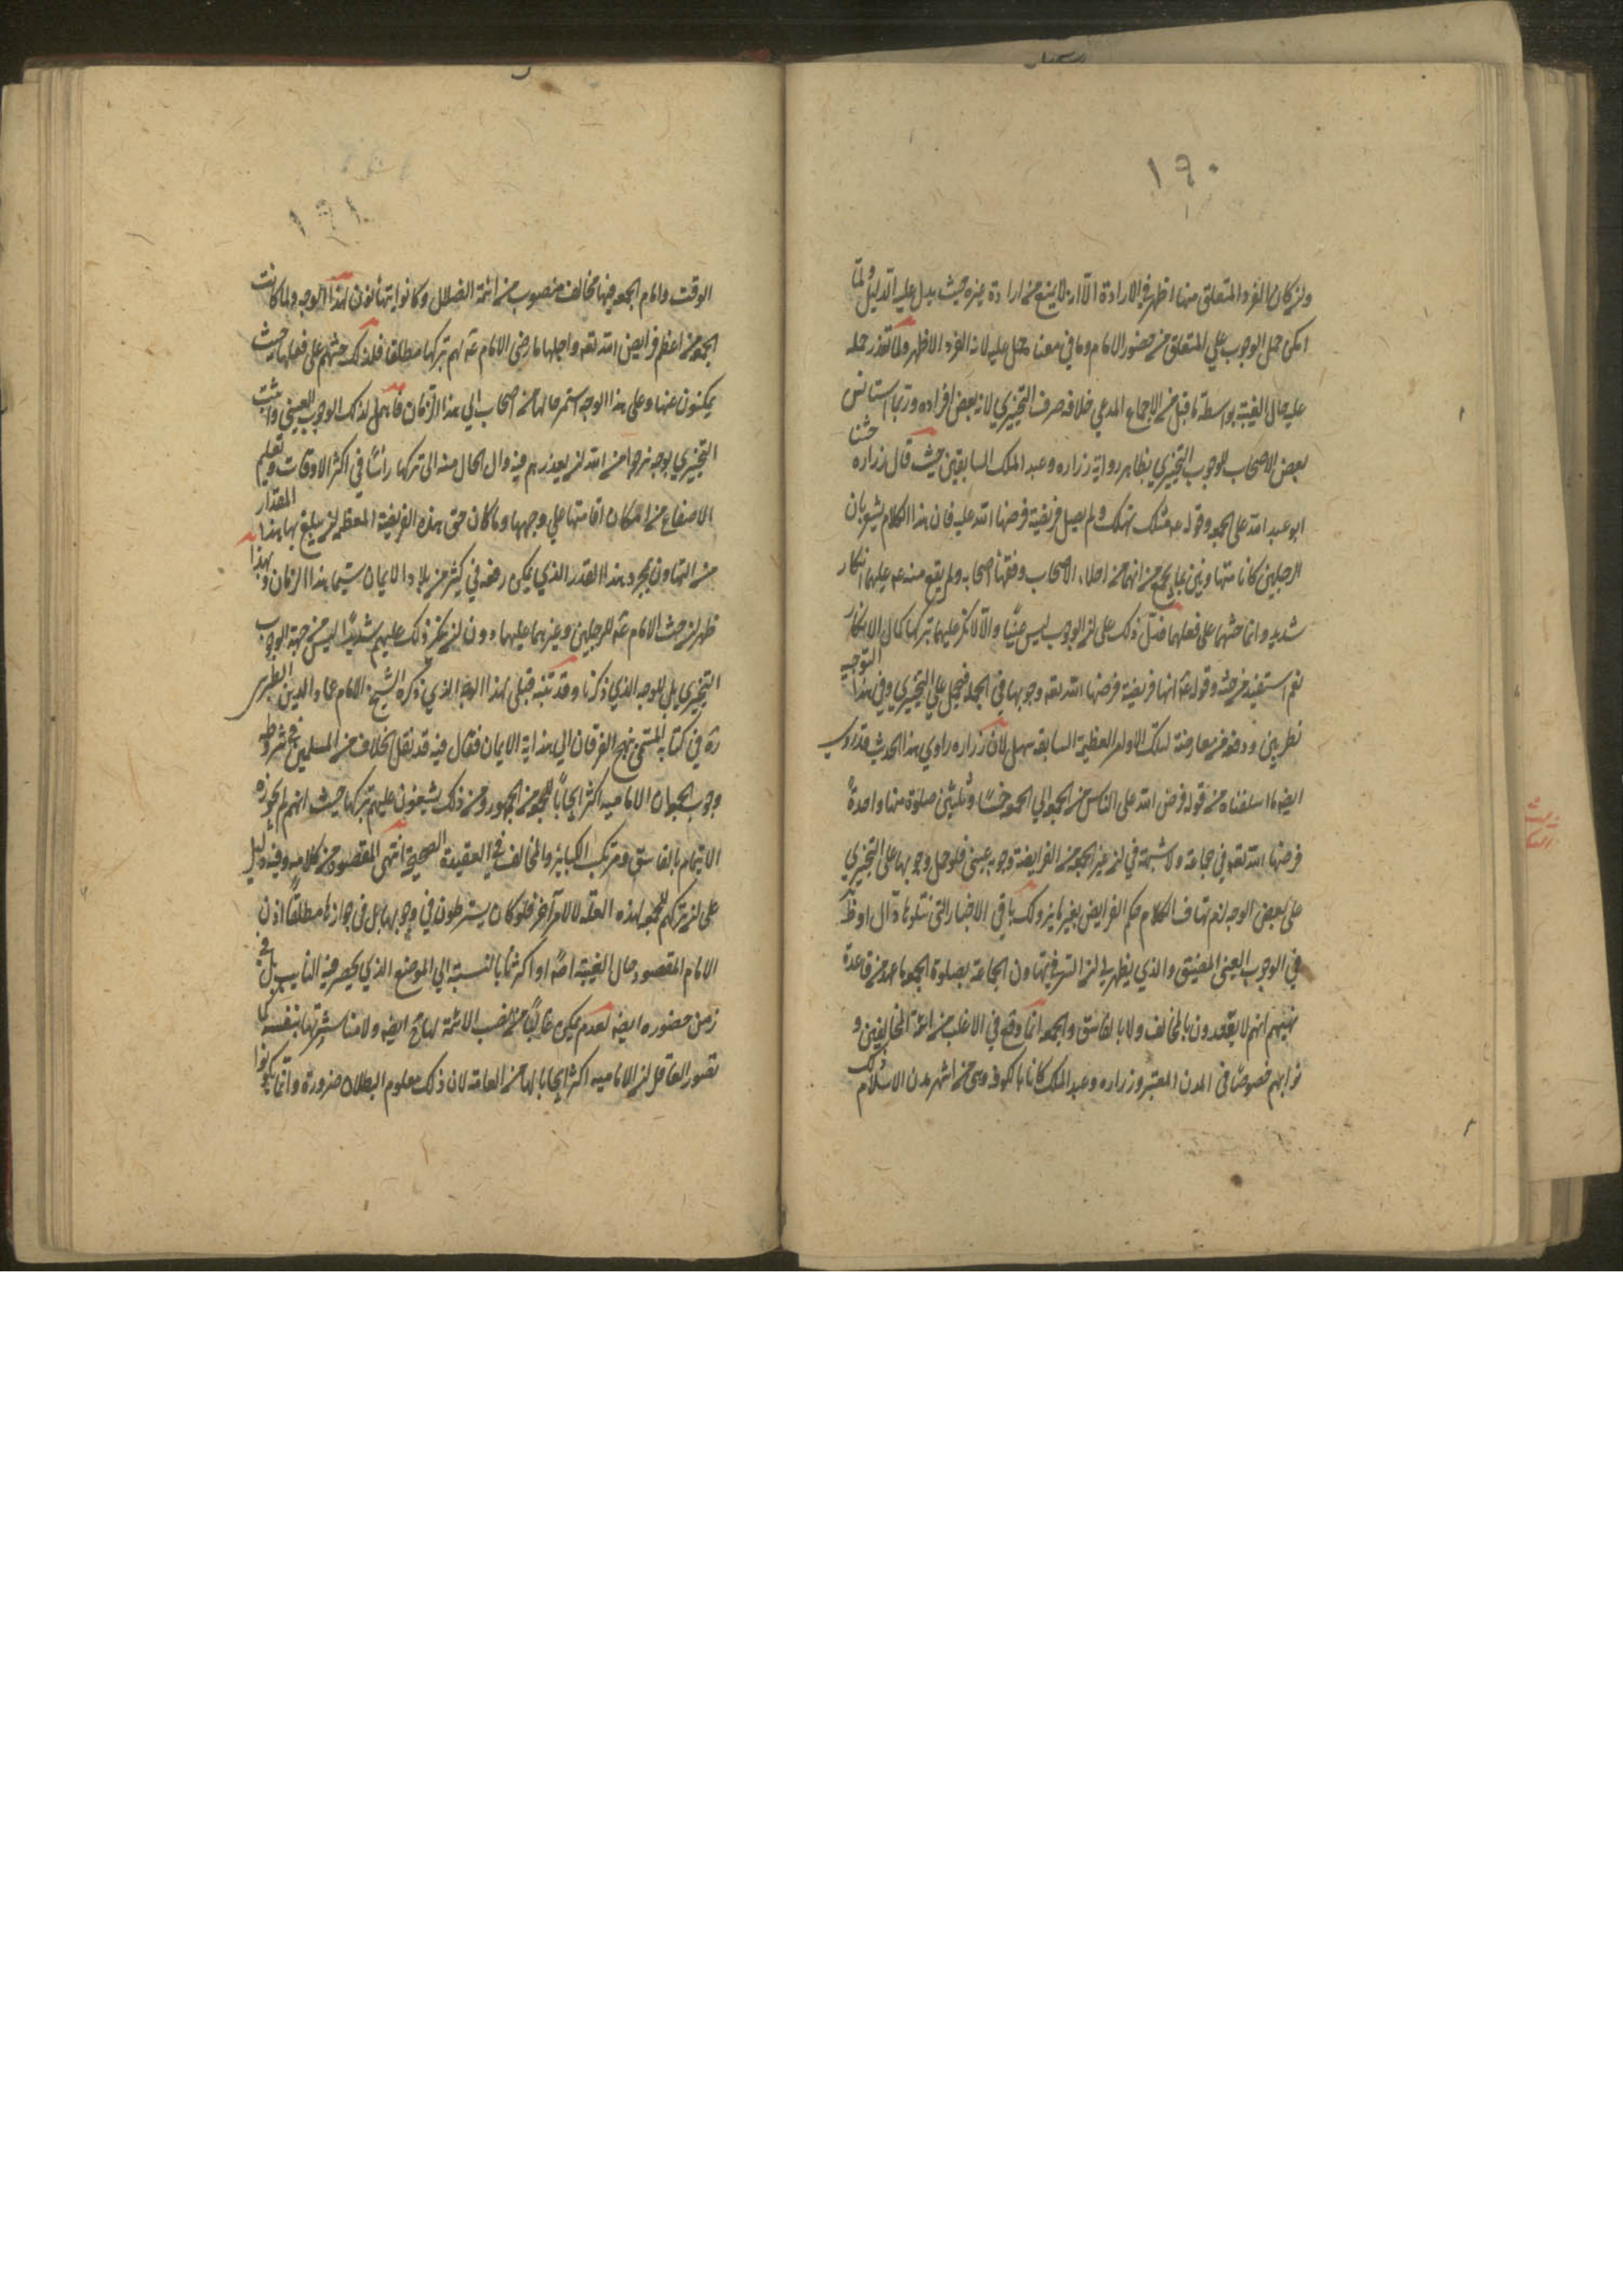 ١٩٠
وان كان الفرد المتعلق منها اظهر في الارادة الا انه لا يمنع من ارادة غيره حيث يدل عليه الدليل ولما
امكن حمل الوجوب على المتعلق من حضور الامام وما في معناه حمل عليه لانه الفرد الاظهر ولما تعذر حمله
عليه حال الغيبة بواسطة ما قيل من الاجماع المدعي خلافه صرف التخييري لانه بعض افراده وربما استانس
بعض الاصحاب للوجوب التخييري بظاهر رواية زراره وعبد الملك السابقتين حيث قال زراره حثنا
ابو عبد الله على الجمعه وقوله عه مثلك يهلك ولم يصل فريضة فرضها الله عليه فان هذا الكلام يشعر بان
الرجلين كانا متهاونين بالجمعه مع انهما من اجلاء الاصحاب وفقهاء اصحابه ولم يقع منه عه عليهما انكار
شديد وانما حثهما على فعلها فدل ذلك على ان الوجوب ليس عينيا والا لانكر عليهما تركها كمال الانكار
نعم استفيد من حثه وقوله عه انها فريضة فرضها الله تعه وجوبها في الجمله فيحمل على التخييري وفي هذا التوجيه
نظر بين ودفعه من معارضة لتلك الاوامر العظيمة السابقه سهل لان زراره راوي هذا الحديث قد روى
ايضه ما اسلفناه من قوله فرض الله على الناس من الجمعه الي الجمعه خمسًا وثلثين صلوة منها واحدةٌ
فرضها الله تعه في جماعة ولا شبهة في ان غير الجمعه من الفرايض وجوبه عيني فلو حمل وجوبها على التخييري
على بعض الوجه لزم تهافت الكلام حكم الفرايض بغيرها وكذلك باقي الاخبار التي نتلوها دال او ظاهر
في الوجوب العيني المضيق والذي يظهر لي ان السر في تهاون الجماعة بصلوة الجمعه ما عهد من قاعدة
مذهبهم انهم لا يقتدون بالمخالف ولا بالفاسق والجمعه انما وقع في الاغلب من ائمة المخالفين و
نوابهم خصوصًا في المدن المعتبره وزراره وعبد الملك كانا بالكوفه وهي من اشهر مدن الاسلام ذلك
١٩١
الوقت وامام الجمعه فيها مخالف منصوب من ائمة الضلال وكانوا يتهاونون بها لهذا الوجه ولما كانت
الجمعه من اعظم فرايض الله تعه واجلها ما رضى الامام عه لهم بتركها مطلقا فلذلك حثهم على فعلها حيث
يتمكنون منها وعلى هذا الوجه استمر حالها مع اصحابنا الي هذا الزمان فاهمل لذلك الوجوب العيني واثبت
التخييري بوجه نرجوا من الله ان يعذرهم فيه وال الحال منه الى تركها راسًا في اكثر الاوقات ومعظم
الاصقاع مع امكان اقامتها على وجهها وما كان حق هذه الفريضة المعظمه ان يبلغ بها هذا المقدار
من التهاون بمجرد هذا القدر الذي يمكن رفعه في كثير من بلاد الايمان سيما هذا الزمان وبهذا
ظهر ان حث الامام عه للرجلين وغيرهما عليها دون ان ينكر ذلك عليهم شديدًا ليس من جهة الوجوب
التخييري بل للوجه الذي ذكرنا وقد تنبه قبلي لهذا الوجه الذي ذكره الشيخ الامام عماد الدين الطبرسي
ره في كتابه المسمى نهج العرفان الي هداية الايمان فقال فيه بعد نقل الخلاف من المسلمين في شروط
وجوب الجمعه ان الاماميه اكثر ايجابًا للجمعه من الجمهور ومع ذلك يشنعون عليهم بتركها حيث انهم لم يجوزوا
الايتمام بالفاسق ومرتكب الكباير والمخالف في العقيدة الصحيحة انتهى المقصود من كلامه وفيه دليل
على ان تركهم للجمعه لهذه العلة لا لامر آخر فلو كان يشترطون في وجوبها بل في جوازها مطلقًا اذن
الامام المقصود حال الغيبة اصلا او اكثريا بالنسبة الي الموضع الذي يحضر فيه النايب بل في
زمن حضوره ايضه لعدم تمكنه غالبًا من نصب الائمة لها ح ايضه ولا مباشرتها بنفسه لما
تصور العاقل ان الاماميه اكثر ايجابا لها من العامة لان ذلك معلوم البطلان ضرورة وانما يكونوا